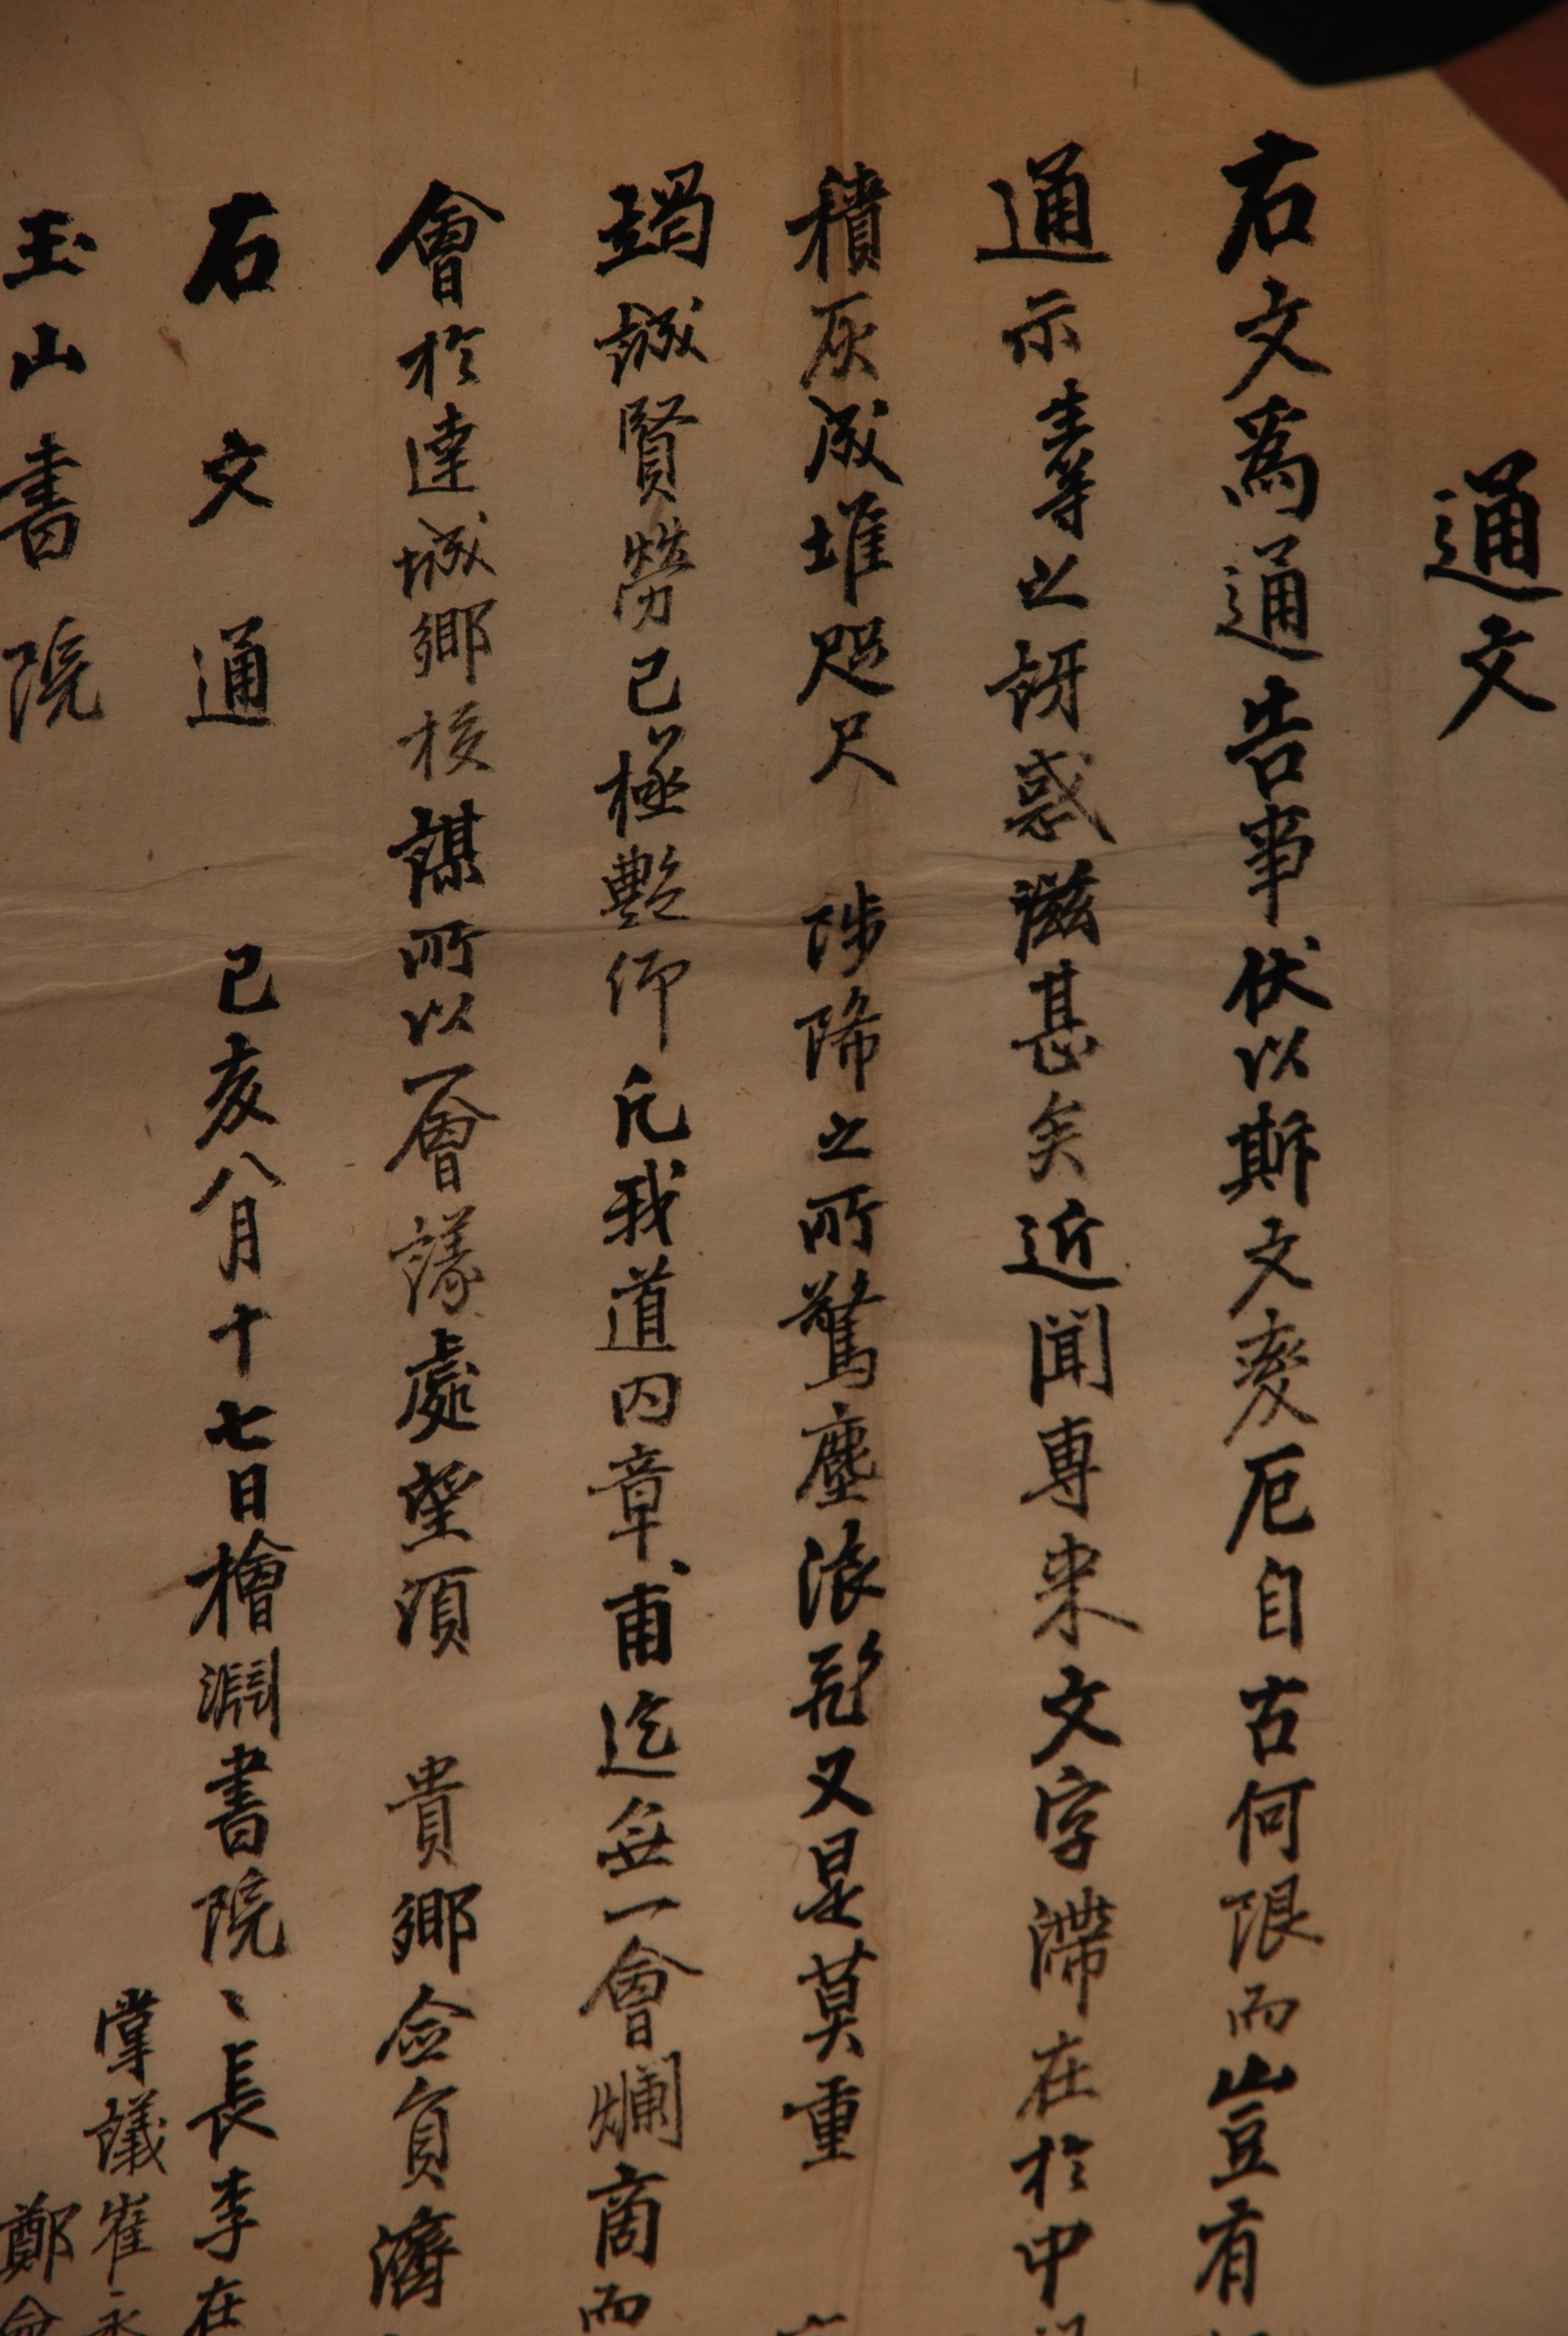 通文
右文爲通告事伏以斯文変厄自古何限而豈有
通示生等之訝惑滋甚矣近聞専来文字滯在於中
積灰成堆咫尺 陟降之所驚塵浪起又是莫重
竭誠賢勞已極艶仰凡我道内章甫迄無一會爛商而
會於達城鄕校謀所以一會議處望須 貴鄕僉員濟
右文通 己亥八月十七日檜淵書院〻長李在
掌議崔永
玉山書院 鄭